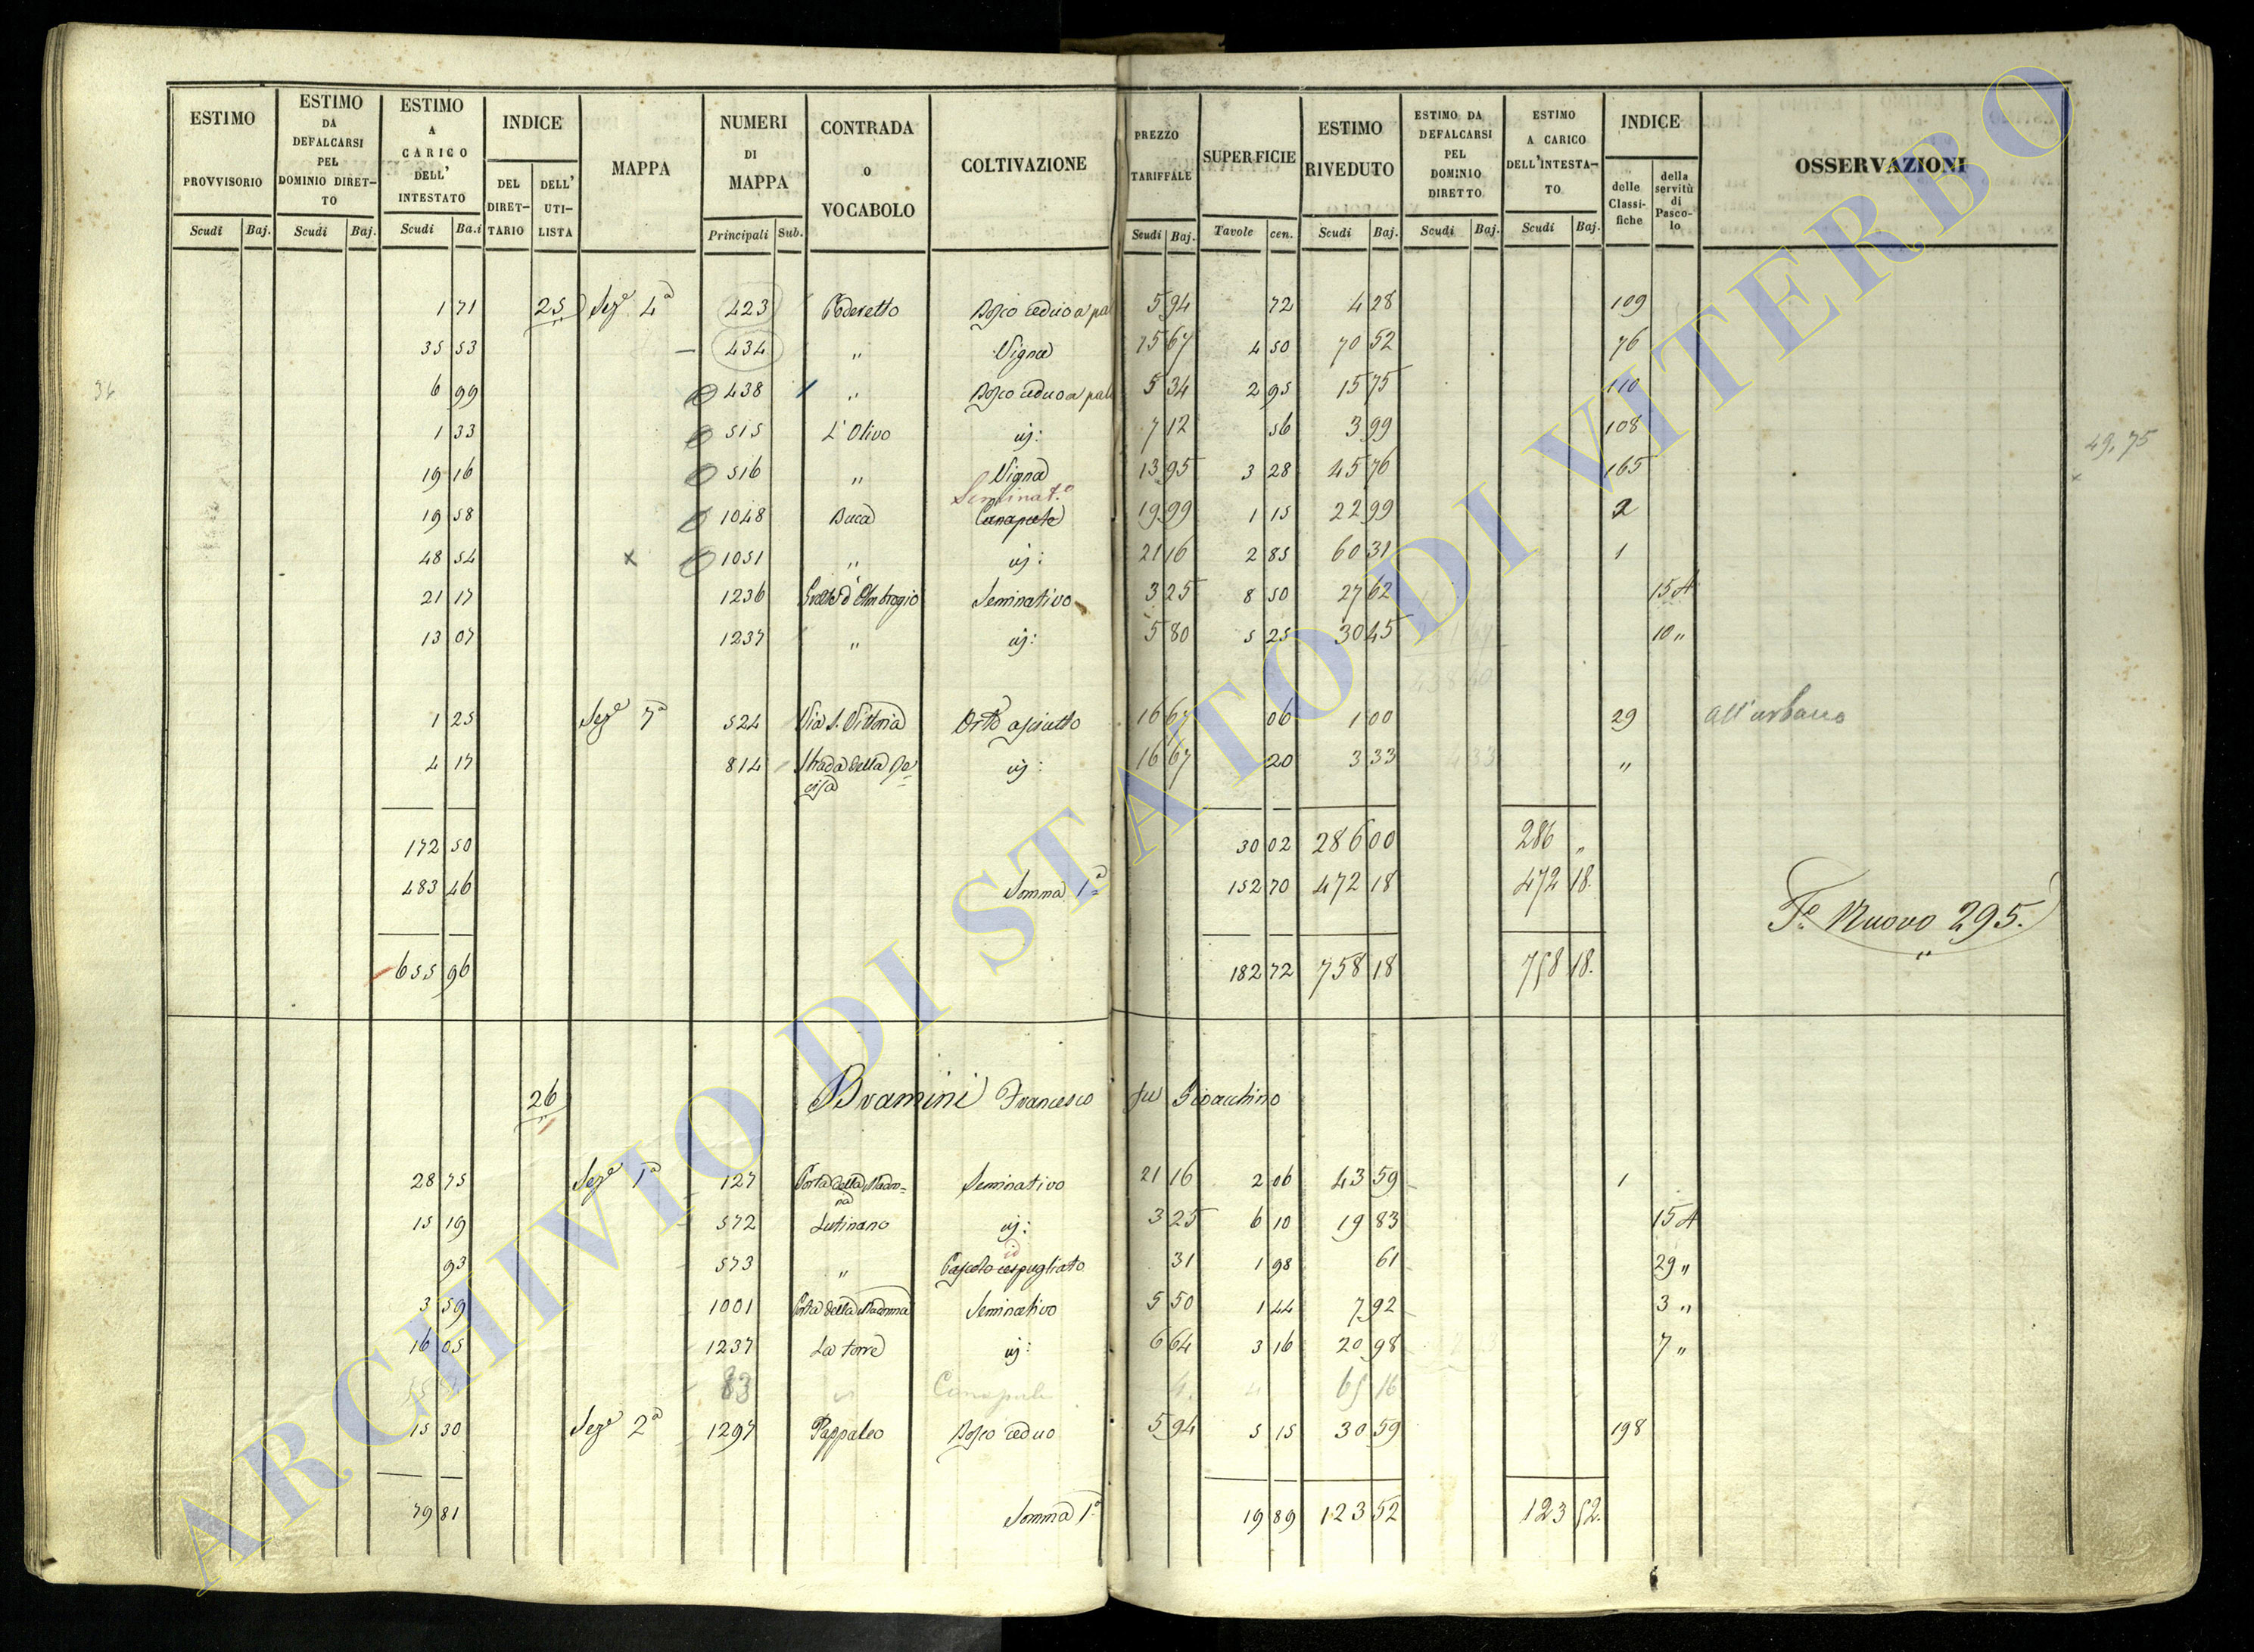 ESTIMO PROVVISORIO | ESTIMO DA DEFALCARSI PEL DOMINIO DIRET-TO | ESTIMO A CARICO DELL' INTESTATO | INDICE | MAPPA | NUMERI DI MAPPA | CONTRADA O VOCABOLO | COLTIVAZIONE | PREZZO TARIFFALE | SUPERFICIE | ESTIMO RIVEDUTO | ESTIMO DA DEFALCARSI PEL DOMINIO DIRETTO | ESTIMO A CARICO DELL'INTESTA-TO | INDICE | OSSERVAZIONI
DEL DIRET-TARIO | DELL' UTI-LISTA | delle Classi-fiche | della servitù di Pasco-lo
Scudi | Baj. | Scudi | Baj. | Scudi | Ba.i | Principali | Sub. | Scudi | Baj. | Tavole | cen. | Scudi | Baj. | Scudi | Baj. | Scudi | Baj.
1 71 | 25 | Seze 4a | 423 | Poderetto | Bosco ceduo a pal | 5 94 | 72 | 4 28 | 109
35 53 | 434 | " | Vigna | 15 67 | 4 50 | 70 52 | 76
36 | 6 99 | 438 | " | Bosco ceduo a pal | 5 34 | 2 95 | 15 75 | 110
1 33 | 515 | L'Olivo | id: | 7 12 | 56 | 3 99 | 108 | 49,75
19 16 | 516 | " | Vigna | 13 95 | 3 28 | 45 76 | 165
Seminat.o
19 58 | 1048 | Buca | Canapule | 19 99 | 1 15 | 22 99 | 2
48 54 | x | 1051 | " | id: | 21 16 | 2 85 | 60 31 | 1
21 17 | 1236 | d'Ambrogio | Seminativo | 3 25 | 8 50 | 27 62 | 15 A
13 07 | 1237 | " | id: | 5 80 | 5 25 | 30 45 | 10 "
1 25 | Seze 7a | 524 | Via S. Vittoria | Orto asciutto | 16 67 | 06 | 1 00 | 29 | All'urbano
4 17 | 814 | Strada della | id: | 16 67 | 20 | 3 33 | "
172 50 | 30 02 | 286 00 | 286 "
483 46 | Somma 1a | 152 70 | 472 18 | 472 18.
Fo. Nuovo 295.
655 96 | 182 72 | 758 18 | 758 18.
26 | Bramini Francesco fu Gioacchino
28 75 | Seze 1a | 127 | Porta della Madon=na | Seminativo | 21 16 | 2 06 | 43 59 | 1
15 19 | 572 | Lutinano | id: | 3 25 | 6 10 | 19 83 | 15 A
id
93 | 573 | " | Pascolo cespugliato | 31 | 1 98 | 61 | 29 "
3 59 | 1001 | Porta della Madonna | Seminativo | 5 50 | 1 44 | 7 92 | 3 "
16 05 | 1237 | La torre | id: | 6 64 | 3 16 | 20 98 | 7 "
83 | Canapule | 65 16
15 30 | Seze 2a | 1297 | Pappaleo | Bosco ceduo | 5 94 | 5 15 | 30 59 | 198
79 81 | Somma 1a | 19 89 | 123 52 | 123 52.
ARCHIVIO DI STATO DI VITERBO